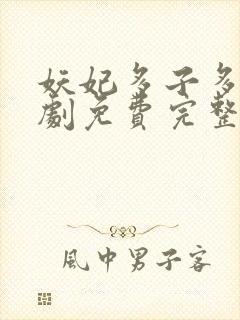 妖妃多子多
劇免費完整
風中男子客